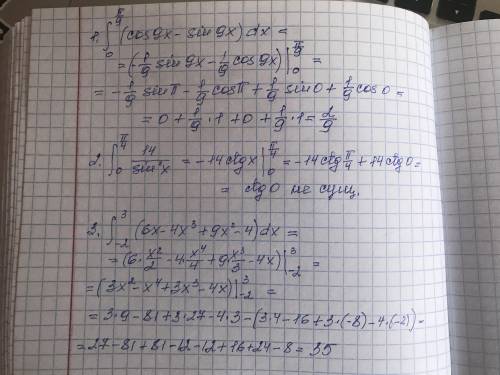 1. ∫₀^(π/9) (cos9x - sin9x)dx =
= (-1/9 sin9x - 1/9 cos9x) |₀^(π/9) =
= -1/9 sinπ - 1/9 cosπ + 1/9 sin0 + 1/9 cos0 =
= 0 + 1/9 · 1 + 0 + 1/9 · 1 = 2/9
2. ∫₀^(π/4) 14/sin²x = -14ctgx |₀^(π/4) = -14ctg π/4 + 14ctg0 =
= ctg0 не сущ.
3. ∫₋₂³ (6x - 4x³ + 9x² - 4)dx =
= (6 · x²/2 - 4 · x⁴/4 + 9 x³/3 - 4x) |₋₂³ =
= (3x² - x⁴ + 3x³ - 4x) |₋₂³ =
= 3·9 - 81 + 3·27 - 4·3 - (3·4 - 16 + 3·(-8) - 4·(-2)) =
= 27 - 81 + 81 - 12 - 12 + 16 + 24 - 8 = 35